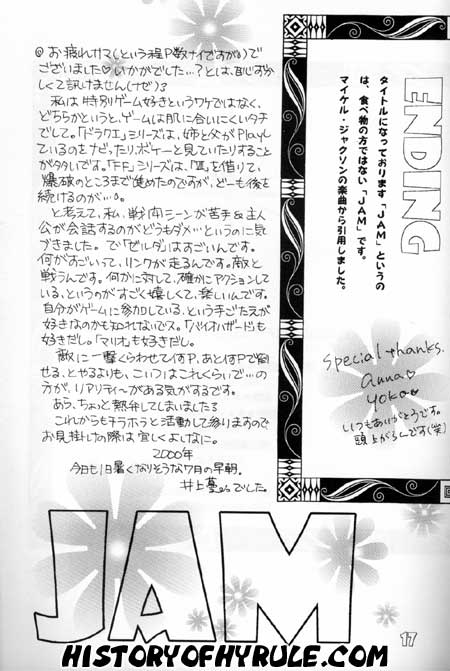 ENDING
タイトルになっております「JAM」というの
は、食べ物の方ではない「JAM」です。
マイケル・ジャクソンの楽曲から引用しました。
Special thanks.
anna♡
yoko♡
いつもありがとうです。
頭上がるんです(笑)
◎お疲れサマ(という程P数ナイですが)で
ございました♡いかがでした…?とは、恥ずかし
くて訊けません(ナゼ)。
私は特別ゲーム好きというワケではなく、
どちらかというと、ゲームは肌に合いにくいタチ
でして。「ドラクエ」シリーズは、姉と父がPlayし
ているのをナビったり、ボケーと見ていたりすること
がタタいです。「FF」シリーズは、「Ⅶ」を借りて、
爆破のところまで進めたのですが、どーも後を
続けるのが…。
と考えて、私、戦闘シーンが苦手&主人
公が会話するのがどうもダメ…というのに気
づきました。で「ゼルダ」はすごいんです。
何がすごいって、リンクが走るんです。敵と
戦うんです。何かに対して、確かにアクションして
いる、というのがすごく嬉しくて、楽しいんです。
自分がゲームに参加している、という手ごたえが
好きなのかも知れないでス。「バイオハザード」も
好きだし。「マリオ」も好きだし。
敵に一撃くらわせて何P、あと何Pで倒
せる、とやるよりも、こいつはこれくらいで…の
方が、リアリティ〜がある気がするです。
あう、ちょっと熱弁してしまいました
これからもチラホラと活動して参りますので
お見掛けの際は宜しくよしなに。
2000年
今日も1日暑くなりそうな7月の早朝。
井上 でした。
JAM
17
HISTORYOFHYRULE.COM